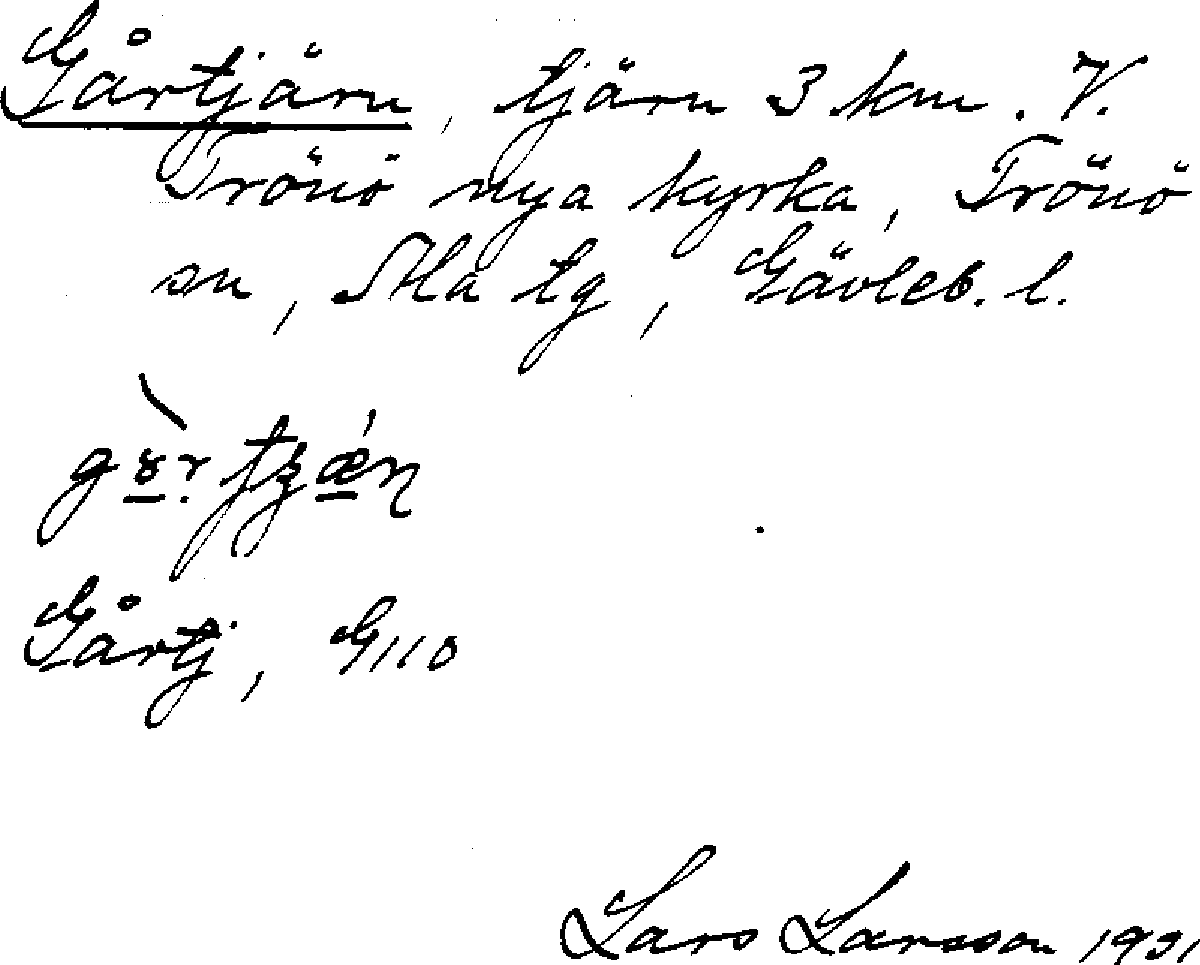 Gårtjärn, tjärn 3 km. V.
Trönö nya kyrka, Trönö
sn, Ala tg, Gävleb. l.
Gårtj, G110
Lars Larsson 1931